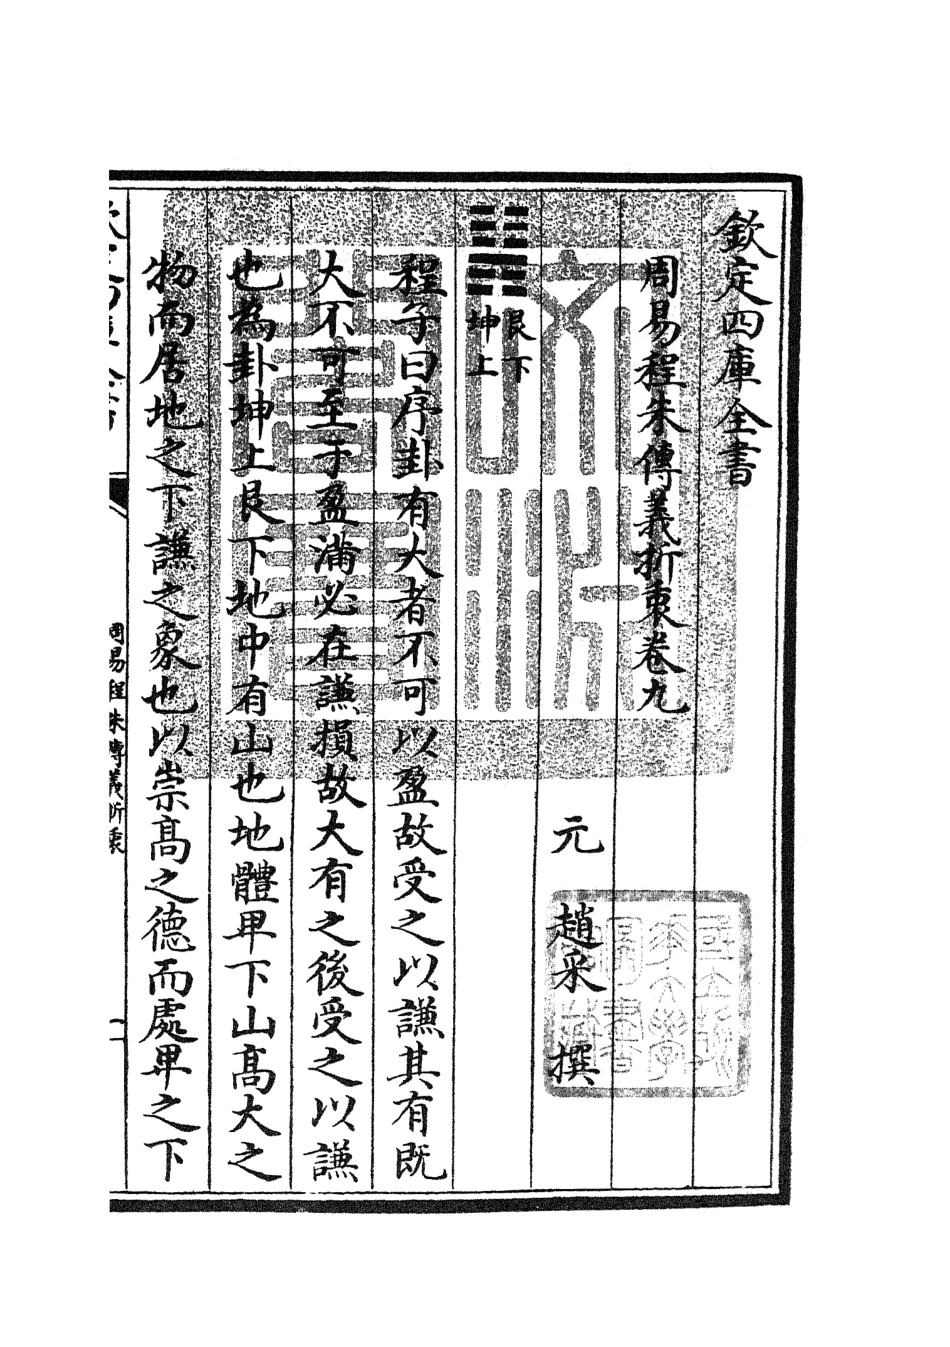 欽定四庫全書
周易程朱傳義折衷卷九
元 趙采 撰
艮下
坤上
程子曰序卦有大者不可以盈故受之以謙其有既
大不可至于盈滿必在謙損故大有之後受之以謙
也為卦坤上艮下地中有山也地體卑下山髙大之
物而居地之下謙之象也以崇髙之德而處卑之下
周易程朱傳義折衷